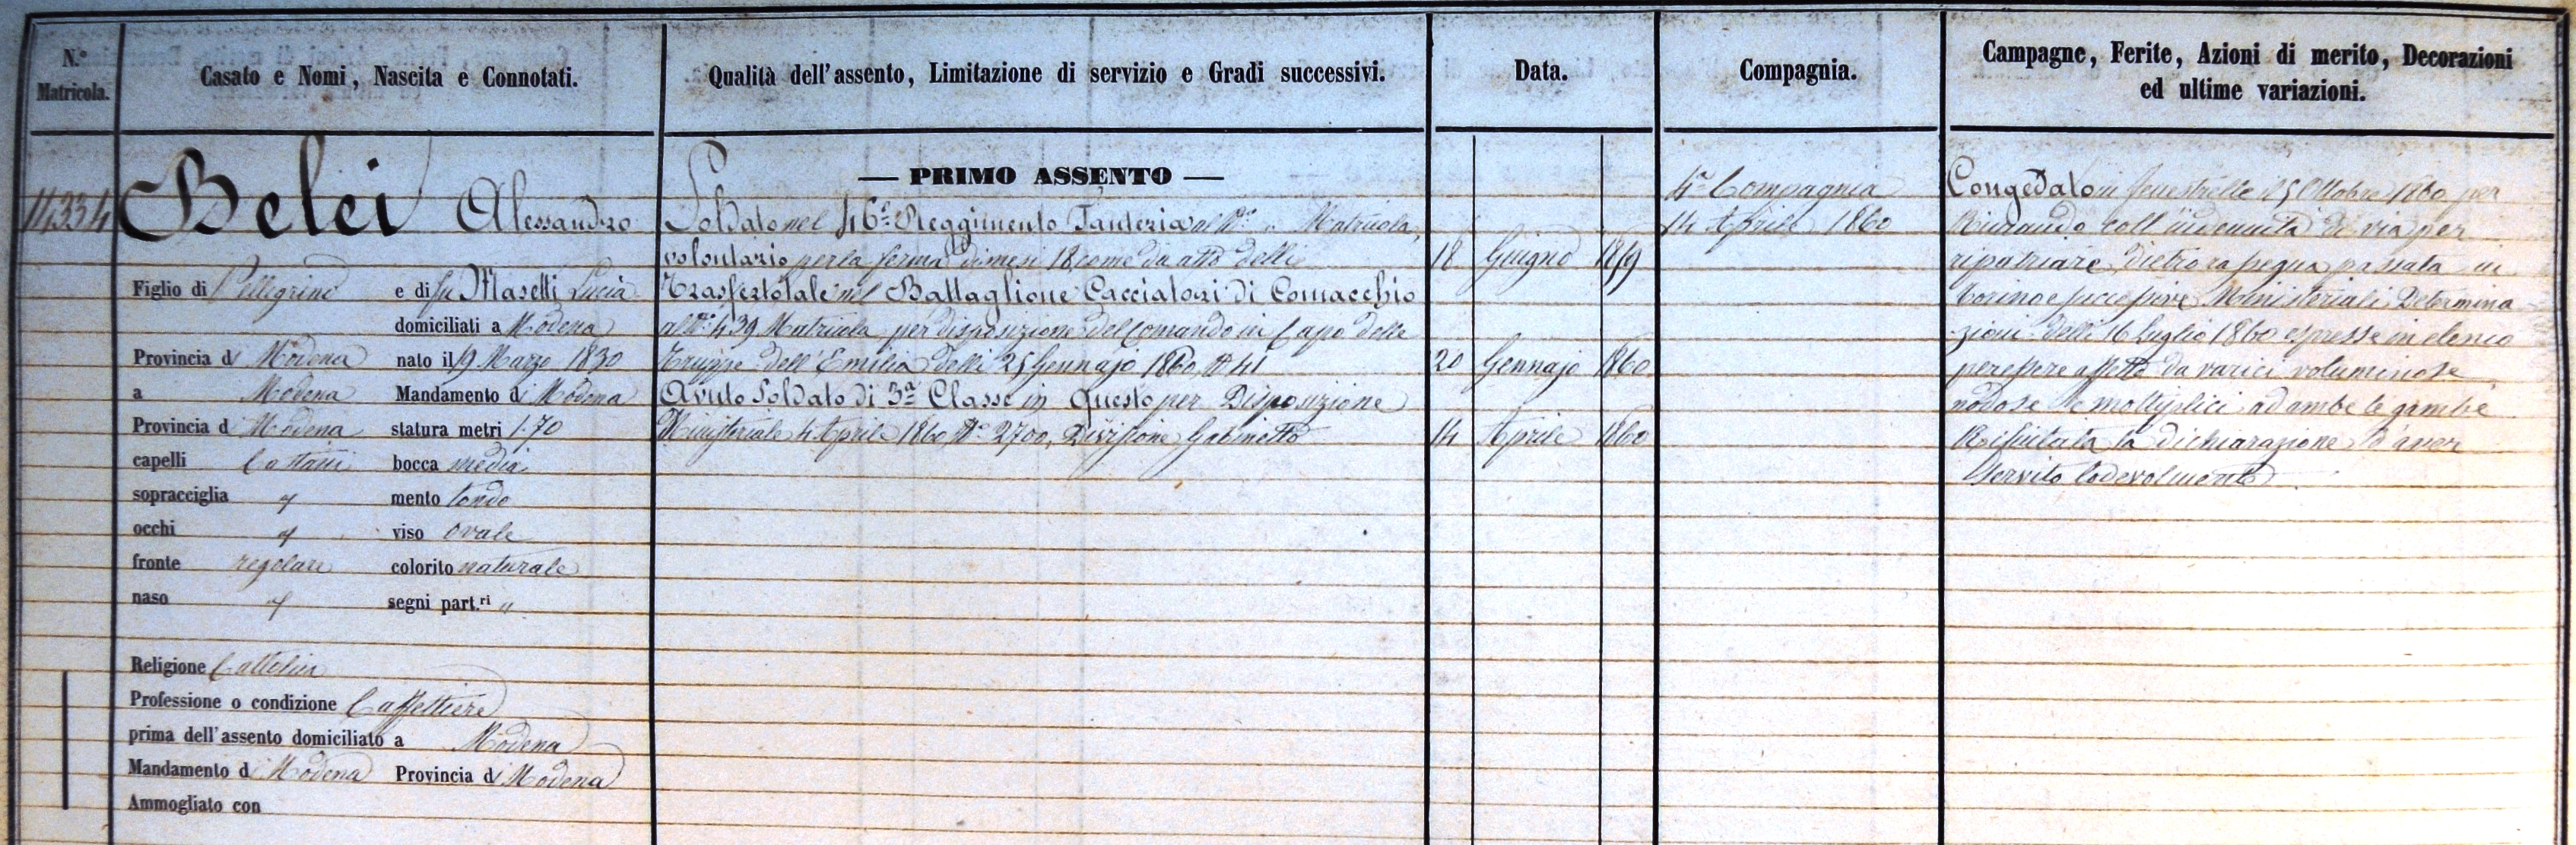 N.º Matricola.
Casato e Nomi, Nascita e Connotati.
Qualità dell'assento, Limitazione di servizio e Gradi successivi.
Data.
Compagnia.
Campagne, Ferite, Azioni di merito, Decorazioni
ed ultime variazioni.
14334
Belei Alessandro
Figlio di Pellegrino e di fu Maselli Lucia
domiciliati a Modena
Provincia di Modena nato il 19 Marzo 1830
a Modena Mandamento di Modena
Provincia d Modena statura metri 1.70
capelli Castani bocca media
sopracciglia " mento tondo
occhi " viso ovale
fronte regolare colorito naturale
naso " segni part.ri "
Religione Cattolica
Professione o condizione Caffettiere
prima dell'assento domiciliato a Modena
Mandamento di Modena Provincia di Modena
Ammogliato con
— PRIMO ASSENTO —
Soldato nel 46º Reggimento Fanteria al Nº " Matricola,
volontario per la ferma di mesi 18, come da atto delli 18 Giugno 1859
Trasferto tale nel Battaglione Cacciatori di Comacchio
al Nº 439 Matricola per disposizione del Comando in Capo delle
Truppe dell'Emilia delli 25 Gennajo 1860, Nº 41 20 Gennajo 1860
Avuto Soldato di 3ª Classe in questo per Disposizione
Ministeriale 4 Aprile 1860 Nº 2700, Divisione Gabinetto 14 Aprile 1860
4ª Compagnia
14 Aprile 1860
Congedato in Fenestrelle il 5 Ottobre 1860 per
Rimando coll'indennità di via per
ripatriare, dietro rassegna passata in
Torino e successive Ministeriali Determina
zioni delli 16 Luglio 1860 espresse in elenco
per essere affetto da varici voluminose
nodose e moltiplici ad ambe le gambe
Rifiutata la dichiarazione d'aver
servito lodevolmente.